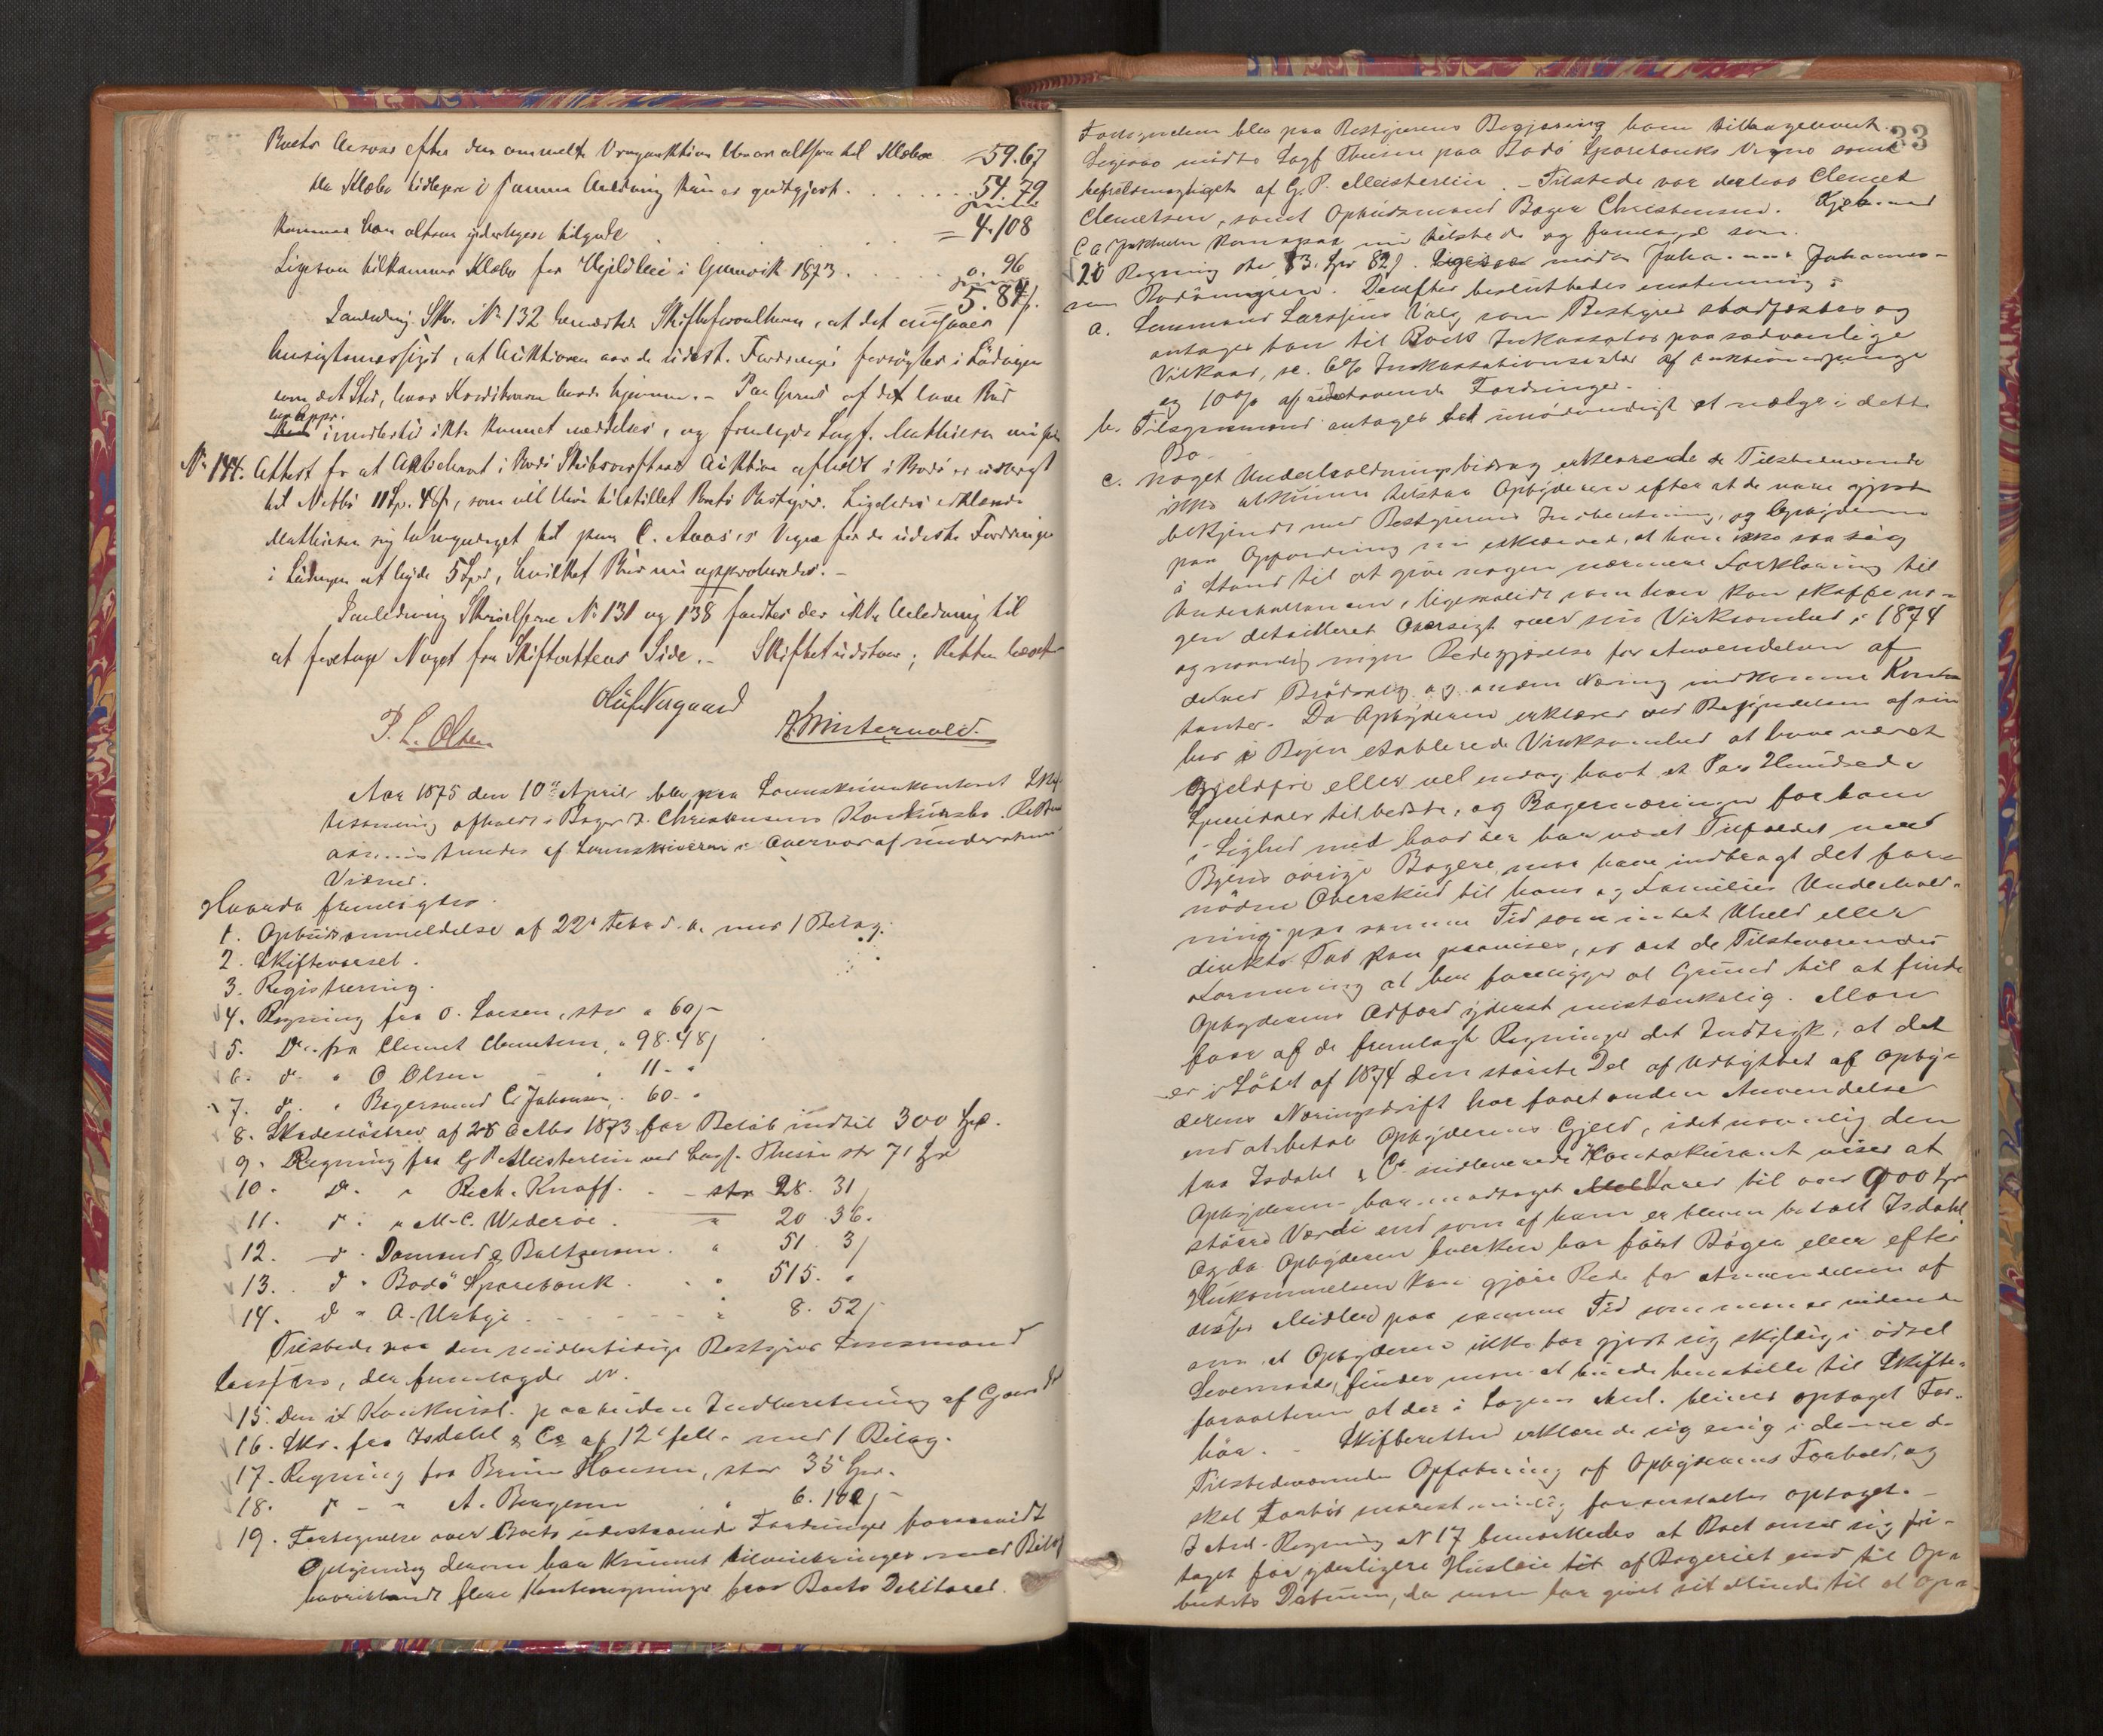 Boets Ansvar efter den anmeldte Vragauktion bliver altsaa til Klæboe 59.67
da Klæboe tidligere i samme Anledning kun er godtgjort . . . 54.79
kommer ham altsaa yderligere tilgode . . . = 4.108
Ligesaa tilkommer Klæboe for Vejeldleie i Gjæsvik 1873 . . . 0. 96
5. 84 s.
I Anledning Skr. No 132 bemærkede Skifteforvalteren, at det ansaaes
hensigtsmæssigst, at Auktionen over de udest. Fordringer forsøgtes i Lødingen
som det Sted, hvor Kreditorerne havde hjemme. - Paa Grund af det lave Bud
har Appr.
imidlertid ikke kunnet meddeles, og fremlagde Sagf. Mathiesen nu
No 144. Attest for at Aktiebrevet i Bodø Skibsværft ved Auktion afholdt i Bodø er udbragt
til Netto 11 Sp. 48 s, som vil blive tilstillet Boets Bestyrer. Ligeledes erklærede
Mathiesen sig bemyndiget til paa C. Aaas's Vegne for de udestd. Fordringer
i Lødingen at byde 5 Spd, hvilket Bud nu approberedes. -
I Anledning Skrivelserne No 131 og 138 fandtes der ikke Anledning til
at foretage Noget fra Skifterettens Side. - Skiftet udstaar; Retten hævet
Oluf Vergaard
P. L. Olsen
A. Wintervold.
Aar 1875 den 10de April blev paa Sorenskriverkontoret Skif-
tesamling afholdt i Bager J. Christensens Konkursbo. Retten
administreredes af Sorenskriveren i Overvær af undertegnede
Vidner.
Hvorda fremlagdes.
1. Opbudsanmeldelse af 22de Febr d. a. med 1 Bilag.
2. Skiftevarsel.
3. Registrering.
4. Regning fra O. Larsen, stor " 60 s -
5. Do. fra Clemet Clemetsen, " 98. 48 s
6. do. " O Olsen " 11 - "
7. do. " Bagersvend C. Johansen, " 60. "
8. Skadesløsbrev af 28 Octbr 1873 for Beløb indtil 300 Spd.
9. Regning fra G. P. Meisterlin ved Sagf. Thiisen stor 71 Spd
10. Do. " Rich. Knoff. - stor 28. 31
11. do. " M. C. Widerøe. " 20. 36.
12. do. Damund & Baltzersen. " 51. 3 s
13. do " Bodø Sparebank. " 515. "
14. do " A. Urbye " 8. 52 s
Tilstede var den midlertidige Bestyrer Lensmand
Larssen, der fremlagde det.
15. Den i Konkursl. paabudne Indberetning af Gaars Dt
16. Skr. fra Isdahl & Co af 12te feb. med 1 Bilag.
17. Regning fra Bruun Hansen, stor 35 Spd.
18. do - " A. Bergesen " 6. 102 s -
19. Fortegnelse over Boets udestaaende Fordringer forsaavidt
Oplysning derom har kunnet tilveiebringes med Bilag
hvoriblandt flere Kontraregninger fra Boets Debitorer.
33
Fortegnelsen blev paa Bestyrerens Begjæring ham tilbageleveret.
Ligesaa mødte Sagf Thiisen paa Bodø Sparebanks Vegne samt
befuldmægtiget af G. P. Meisterlin. - Tilstede var derhos Clemet
Clemetsen, samt Opbudsmand Bager Christensen. Kjøbmand
C. A. Jakhelln kom ogsaa nu tilstede og fremlagde som
20 Regning stor 83. Spd 82 s. Ligesaa mødte Joha Johannes-
sen Rødøningen. Derefter besluttedes enstemmig:
a. Lensmand Larssens Valg som Bestyrer stadfæstes og
antages han til Boets Inkassator paa sædvanlige
Vilkaar, se. 6% Inkassationssalær af auktionspenge
og 10% af udestaaende Fordringer.
b. Tilsynsmand antages det unødvendigt at vælge i dette
Bo.
c. Noget Underholdningsbidrag erklærede de Tilstedeværende
ikke at kunne tilstaa Opbyderen efter at de vare gjort
bekjendt med Bestyrerens Indberetning, og Opbyderen
paa Opfordring nu erklærede, at han ikke saa sig
i Stand til at give nogen nærmere Forklaring til
Underballancen, ligesaalidt som han kan skaffe no-
gen detailleret Oversigt over sin Virksomhed i 1874
og navnlig ingen Redegjørelse for Anvendelsen af
de ved Brødsalg og anden Næring indkomne Kontan-
tanter. Da Opbyderen erklærer ved Begyndelsen af sin
her i Byen etablerede Virksomhed at have været
gjeldfri eller vel endog havt et Par Hundrede
Speciedaler tilbedste, og Bagernæringen for ham
i Lighed med hvad der har været Tilfældet med
Byens øvrige Bagere maa have indbragt det for-
nødne Overskud til hans og Families Underhold-
ning paa samme Tid som intet Uheld eller
direkte Tab kan paavises, er det de Tilstedeværendes
Formening at her foreligger al Grund til at finde
Opbyderens Adfærd yderst mistænkelig. Man
faar af de fremlagte Regninger det Indtryk, at der
er i Løbet af 1874 den største Del af Udbyttet af Opby-
derens Næringsdrift har faaet anden Anvendelse
end at betale Opbyderens Gjeld, idet navnlig den
fra Isdahl & Co indleverede Kontokurant viser at
Opbyderen har modtaget Melvarer til over 900 Spd
større Værdi end som af ham er bleven betalt Isdahl.
Og da Opbyderen hverken har ført Bøger eller efter
Hukommelsen kan gjøre Rede for Anvendelsen af
disse Midler paa samme Tid som man er vidende
om at Opbyderen ikke har gjort sig skyldig i ødsel
Levemaade, finder man at burde henstille til Skifte-
forvalteren at der i Sagens Anl. bliver optaget For-
hør. - Skifteretten erklærede sig enig i denne de
Tilstedeværendes Opfatning af Opbyderens Forhold, og
skal Forhør snarest mulig foranstaltes optaget. -
I Anl. Regning No 17 bemærkedes at Boet anser sig fri-
taget for yderligere Husleie af Bageriet end til Op-
budets Datum, da man har givet sit Minde til at Op-